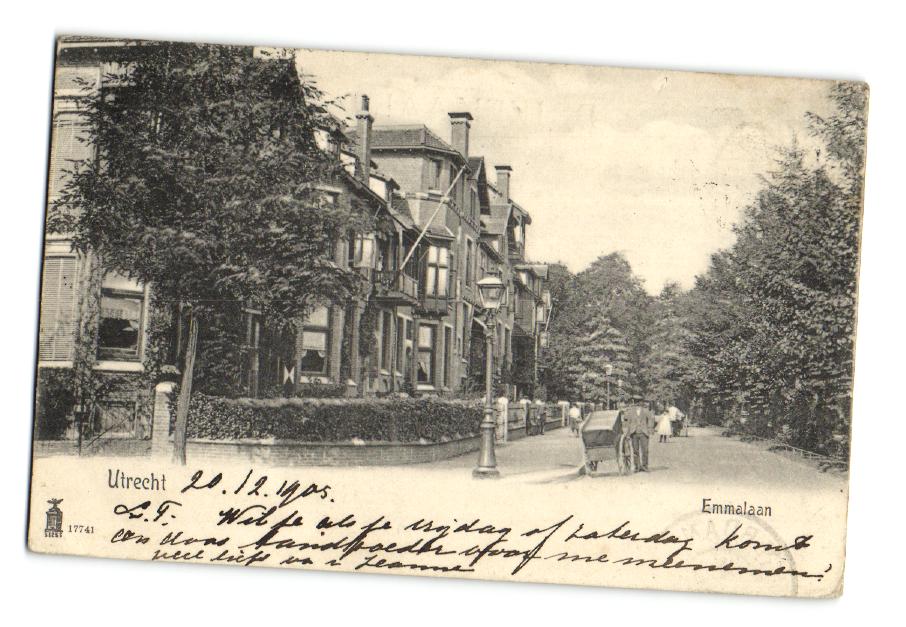 Utrecht 20./2.1905.
Emmalaan
17741
L.T. Wil je als je vrijdag of zaterdag komt
een doos tandpoeder voor me meenemen?
veel liefs van Jeanne